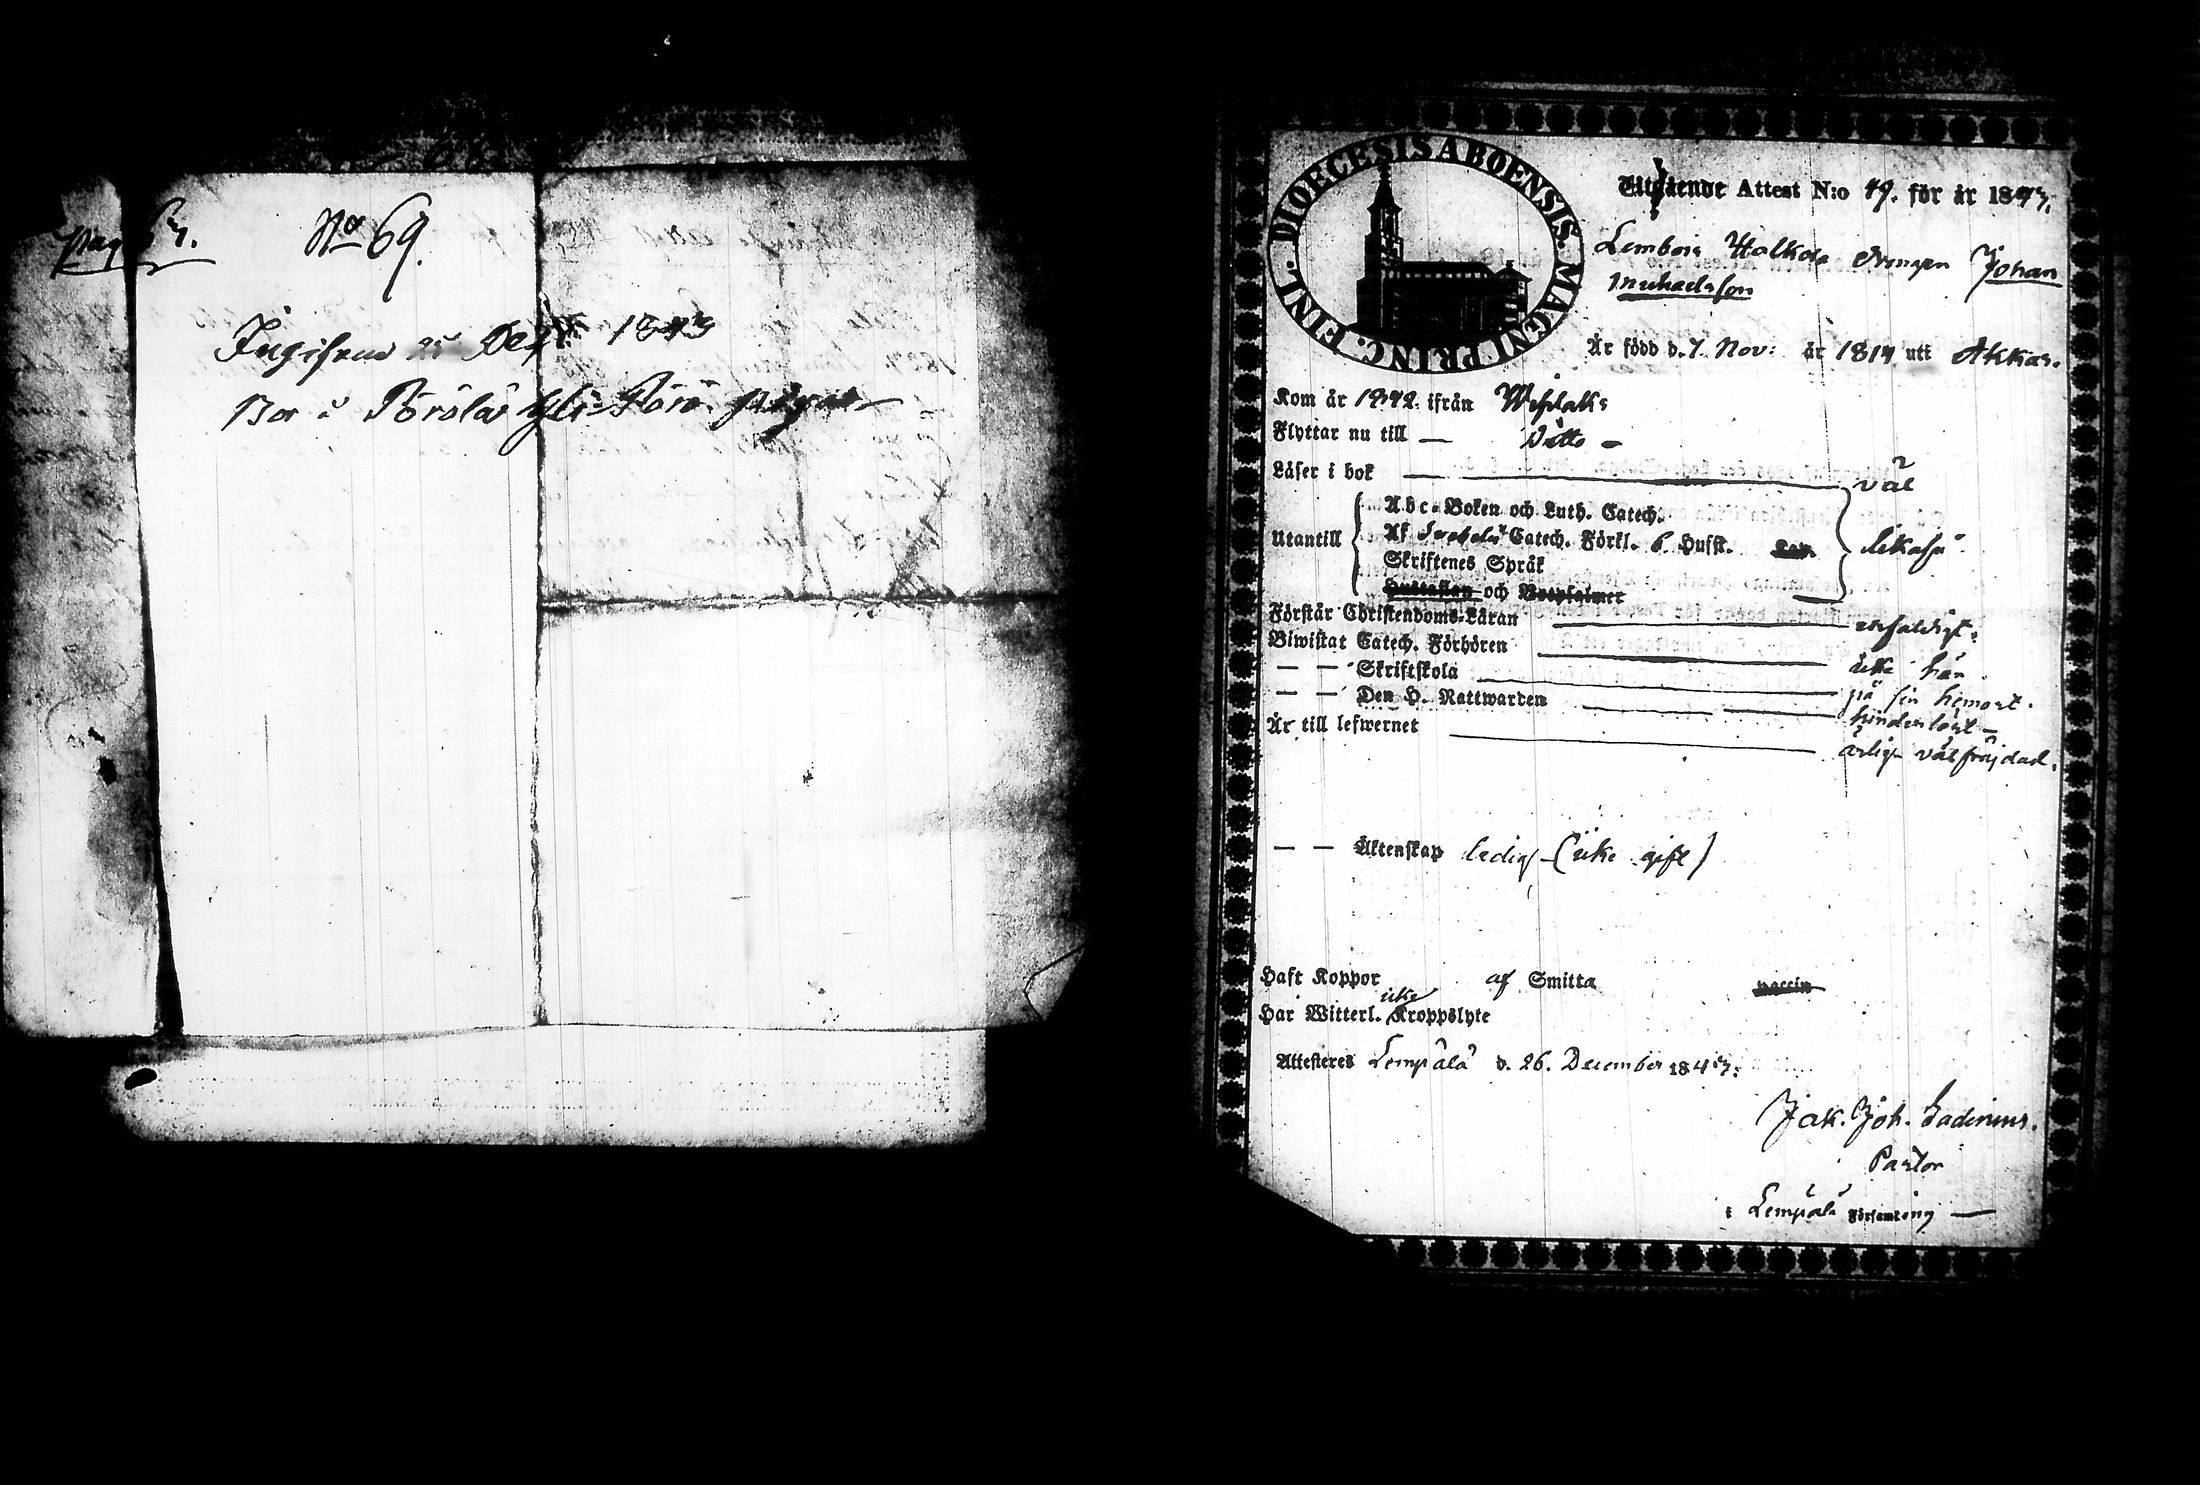 pag 63.
No 69.
Ingifven 25 Dec 1843
Bor i Pörölä
DIOECESIS ABOENSIS. MAGNI PRINC. FINL.
Utgående Attest N:o 49. för år 1843.
Lembois Halkola drengen Johan
Michaelsson
Är född d. 7 Nov: år 1819 uti Akkas.
Kom år 1842. ifrån Wesilaks
Flyttar nu till — Ditto —
Läser i bok — väl
Abc-Boken och Luth. Catech.
Utantill Af Svebelii Catech. Förkl. 6 Husst. Dav. likaså
Skriftenes Språk
Hustaflan och Botpsalmer
Förstår Christendoms-Läran — enfaldigt.
Biwistat Catech. Förhören — icke här
— — Skriftskola — på sin hemort.
— — Den H. Nattwarden — hinderlöst —
Är till lefwernet — ärlig välfröjdad.
— — Äktenskap ledig — (icke gift)
Haft Koppor af Smitta vaccin
icke
Har Witterl. Kroppslyte
Attesteres Lempälä d. 26. December 1843.
Jak. Joh. Gadenius.
Pastor
i Lempälä Församling —